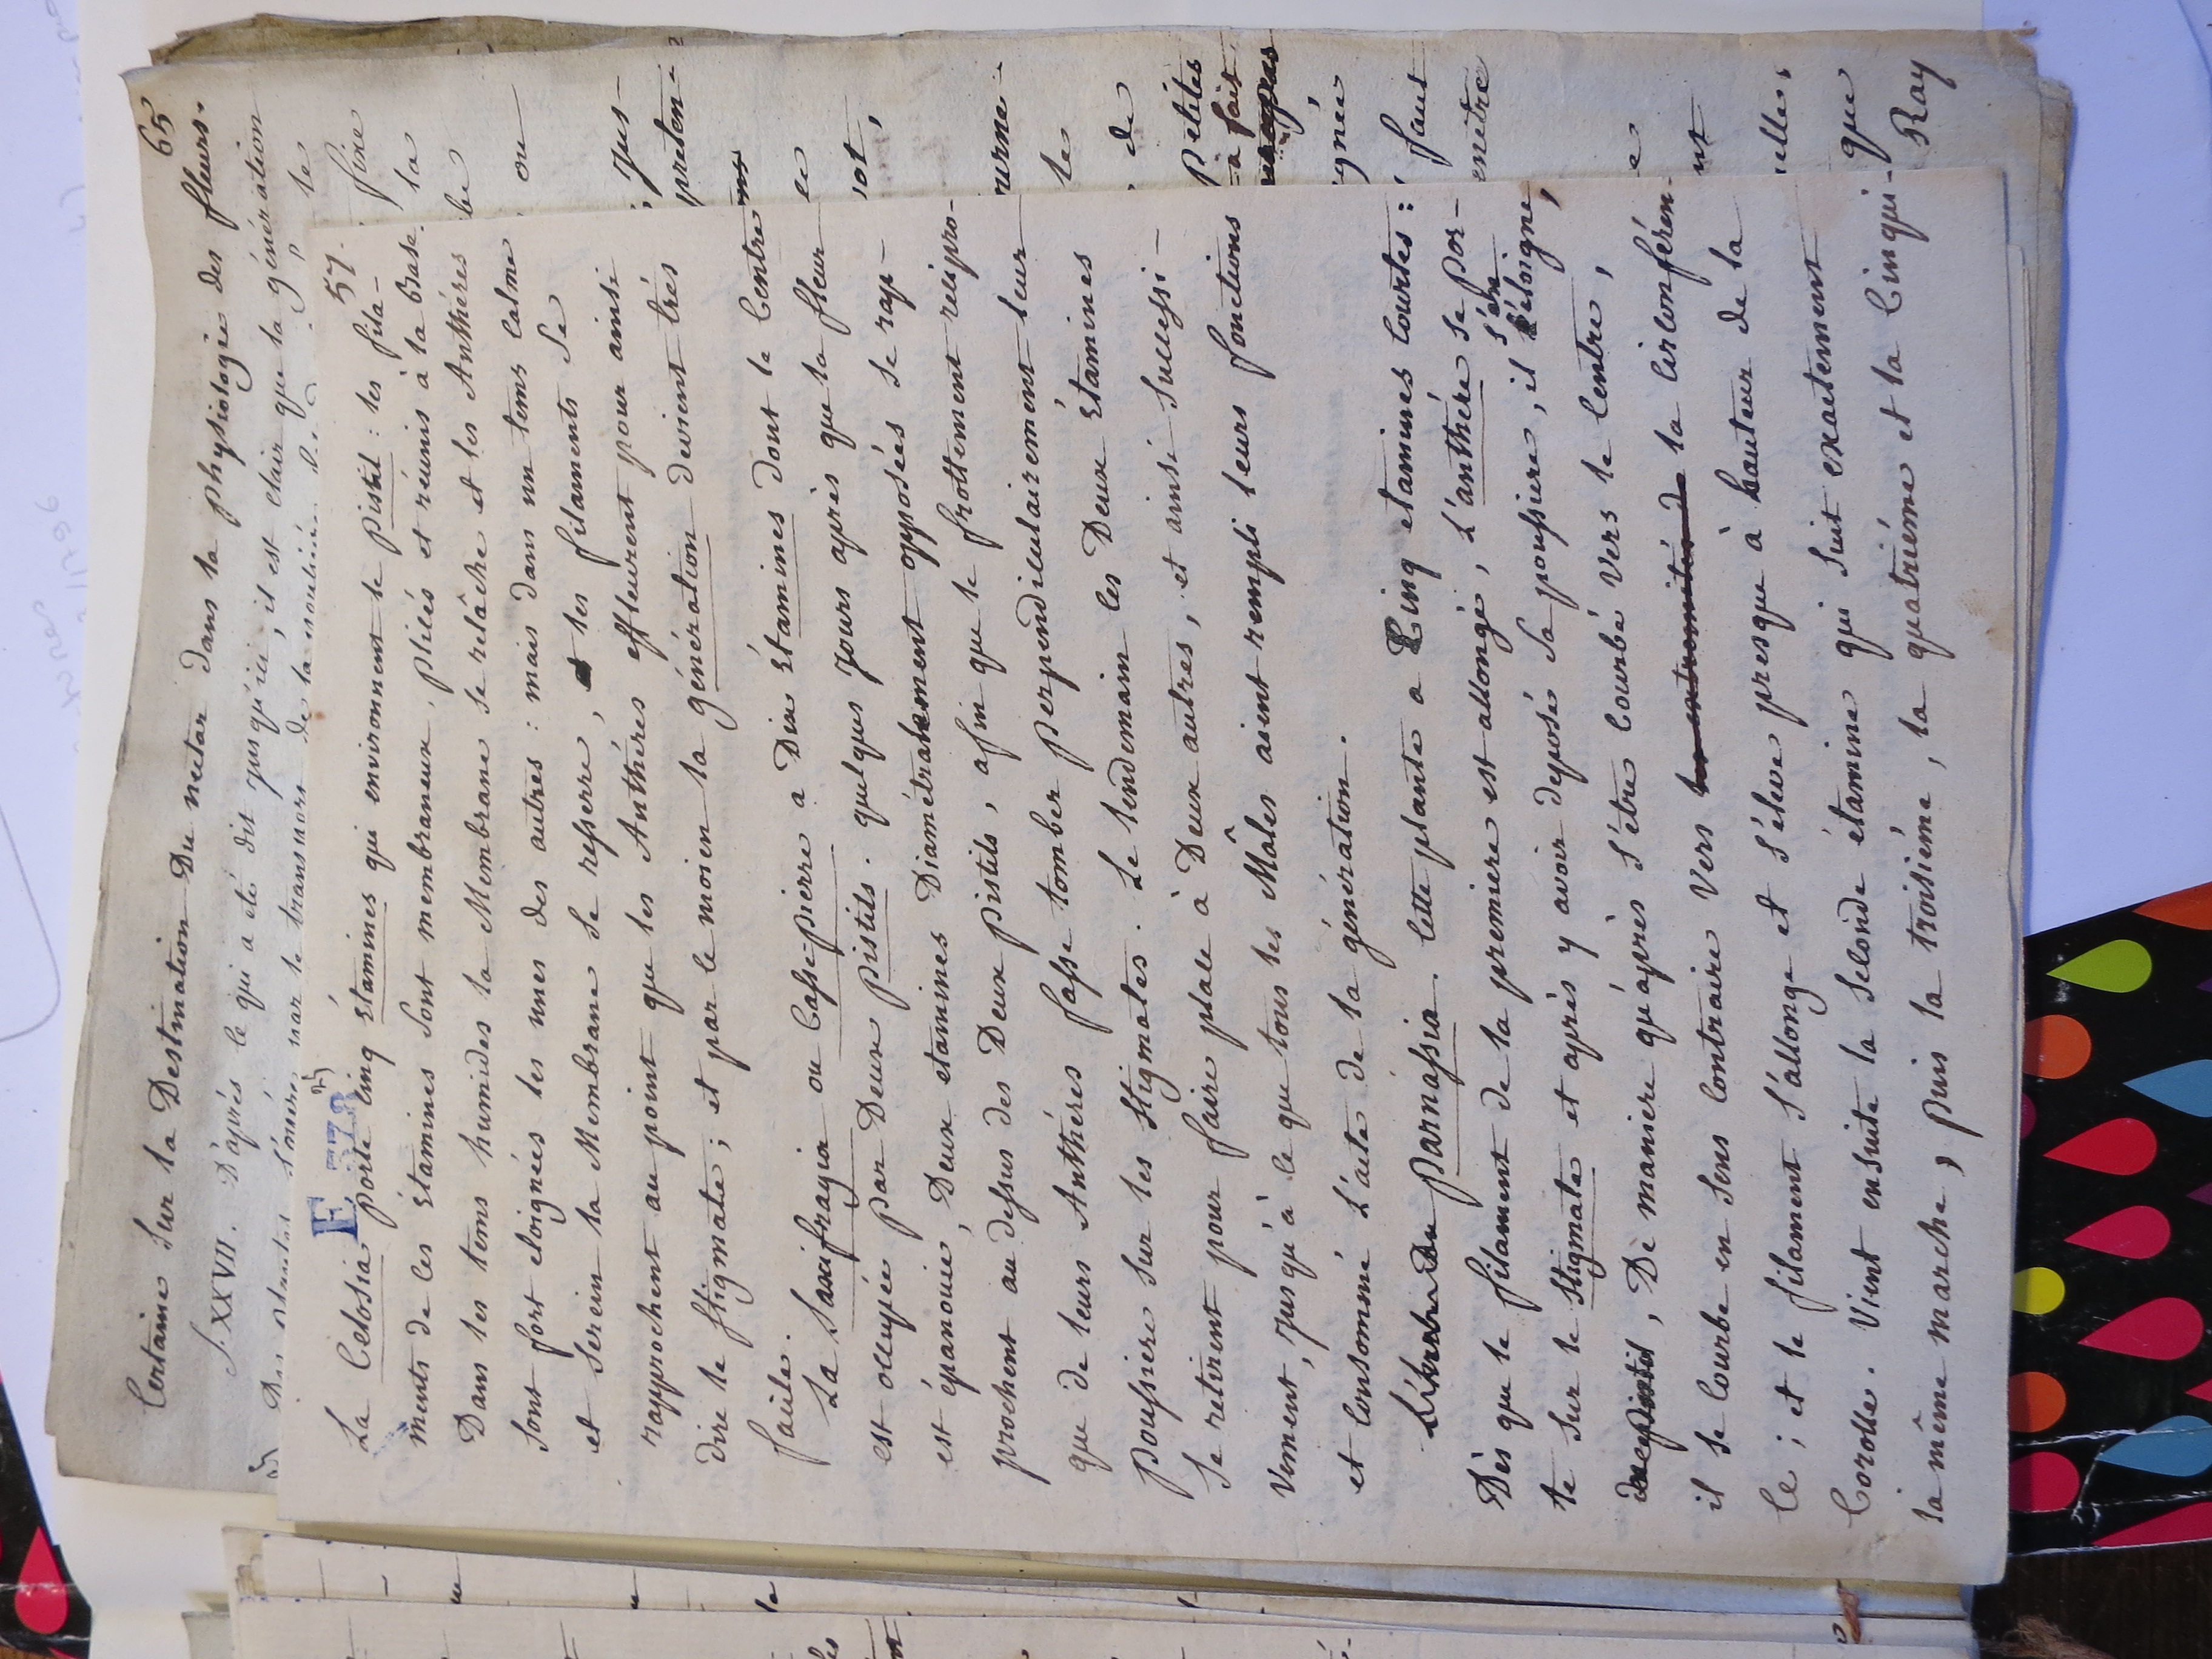 65
Certaine sur la Destination Du nectar dans la physiologie des fleurs.
§. XXVII. D'après ce qui a eté dit jusqu'ici, il est clair que la génération
57.
E
La Celosia porte cinq Étamines qui environnent le pistil: les fila-
ments de ces Étamines sont membraneux, pliés et réunis à la Base.
Dans les tems humides la Membrane se relâche et les Anthéres
sont fort eloignées les unes des autres: mais dans un tems calme
et serein la Membrane se resserre, les filaments se
rapprochent au point que les Anthéres effleurent pour ainsi
dire le stigmate; et par le moien la génération devient très
facile.
La Saxifragia ou Casse-pierre a Dix Étamines dont le Centre
est occupée par Deux pistils. quelques jours après que la fleur
est épanouie, Deux etamines Diamétralement opposées se rap-
prochent au dessus des Deux pistils, afin que le frottement recipro-
que de leurs Anthéres fasse tomber perpendiculairement leur
poussiere sur les stigmates. Le lendemain les Deux étamines
se retirent pour faire place à Deux autres, et ainsi successi-
vement, jusqu'à ce que tous les Mâles aient rempli leurs fonctions
et consommé l'acte de la génération.
Parnassia. Cette plante a Cinq etamines courtes:
Dès que le filament de la premiere est allongé, l'anthére se por-
te sur le stigmate et après y avoir deposé sa poussiere, il s'éloigne,
De maniere qu'après s'être courbé vers le centre,
il se courbe en sens contraire vers les extremités de la circonféren-
ce; et le filament s'allonge et s'éleve presque à hauteur de la
Corolle. Vient ensuite la seconde étamine qui suit exactement
la même marche, puis la troisième, la quatriéme et la Cinqui-
le
fixe
la
ou
jus-
preten-
le
de
Petites
à fait
faut
que
Ray